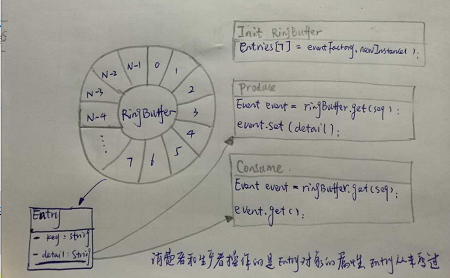 Init RingBuffer
Entries[7] = eventFactory.newInstance();
N-2
N-1
0
1
N-3
2
N-4
RingBuffer
3
4
7
6
5
Produce
Event event = ringBuffer.get(seq);
event.set(detail);
Consume
Event event = ringBuffer.get(seq);
event.get();
Entry
- key: string
- detail: String
消费者和生产者操作的是Entry对象的属性,Entry从来